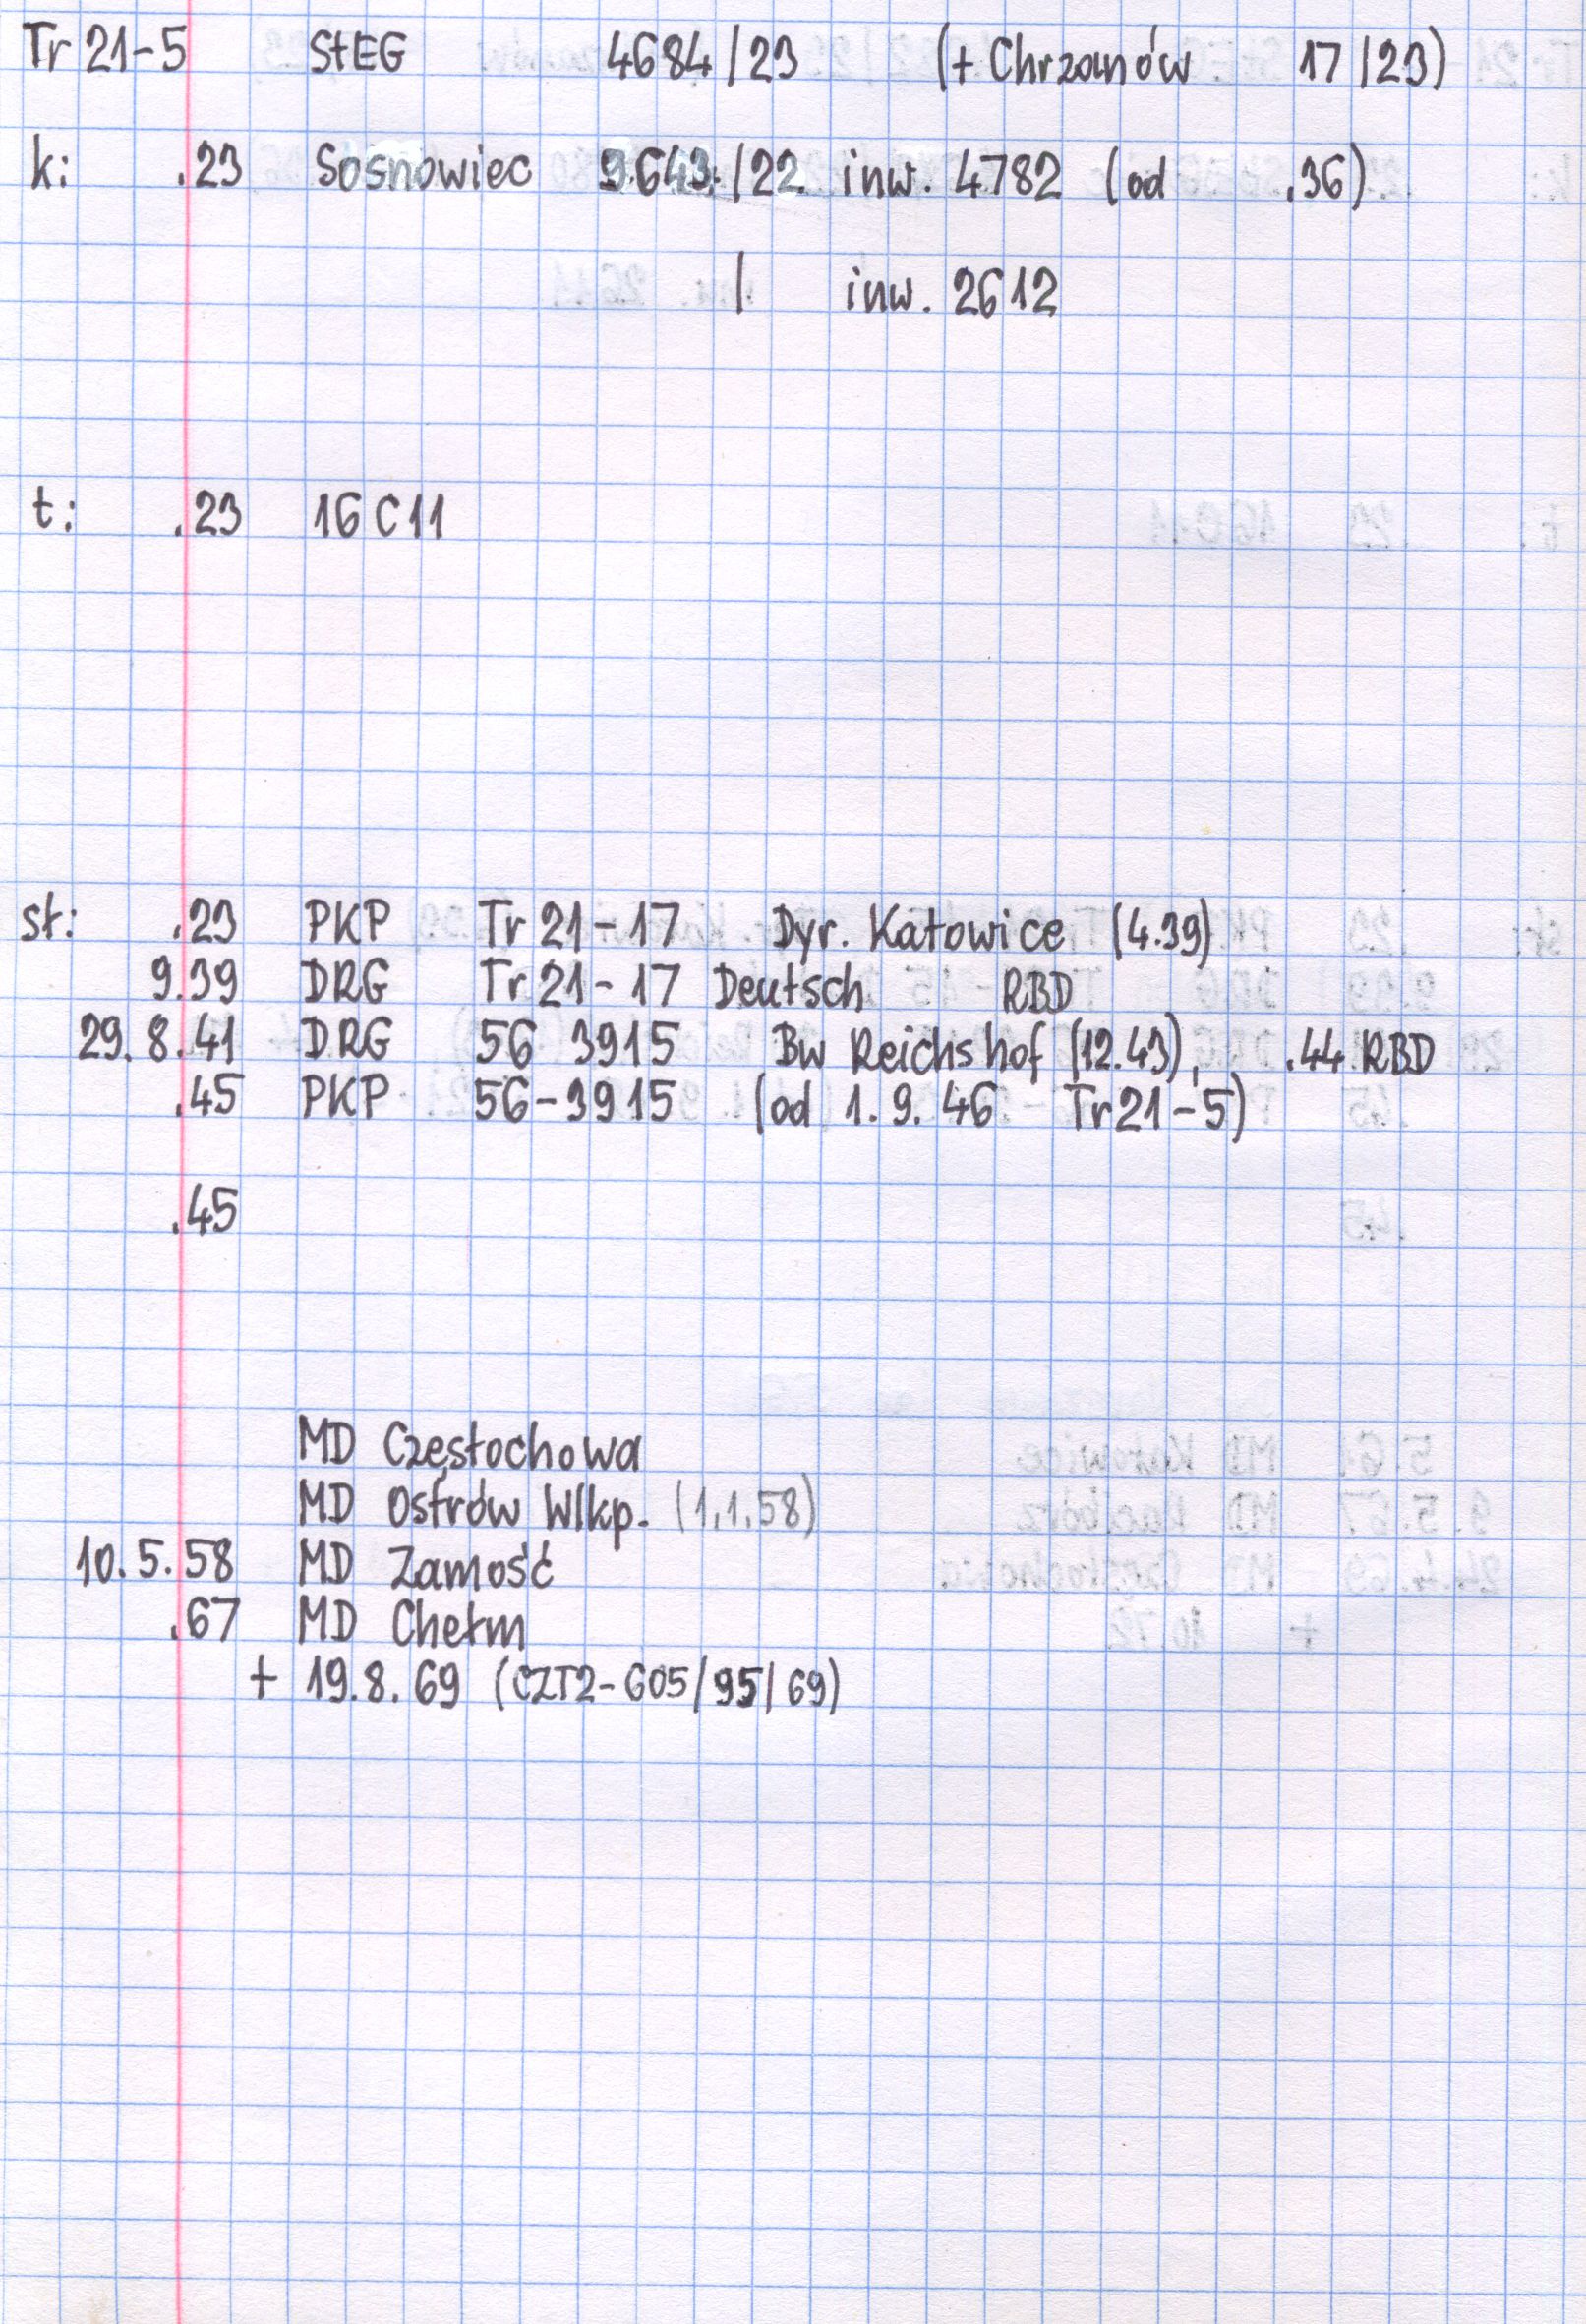 Tr 21-5 StEG 4684/23 (+ Chrzanów 17/23)
k: .23 Sosnowiec 9643/22 inw. 4782 (od .36)
/ inw. 2612
t: .23 16C11
sł: .23 PKP Tr 21-17 Dyr. Katowice (4.39)
9.39 DRG Tr 21-17 Deutsch RBD
29.8.41 DRG 56 3915 Bw Reichshof (12.43), .44 RBD
.45 PKP 56-3915 (od 1.9.46 Tr21-5)
.45
MD Częstochowa
MD Ostrów Wlkp. (1.1.58)
10.5.58 MD Zamość
.67 MD Chełm
+ 19.8.69 (CZT2-605/95/69)